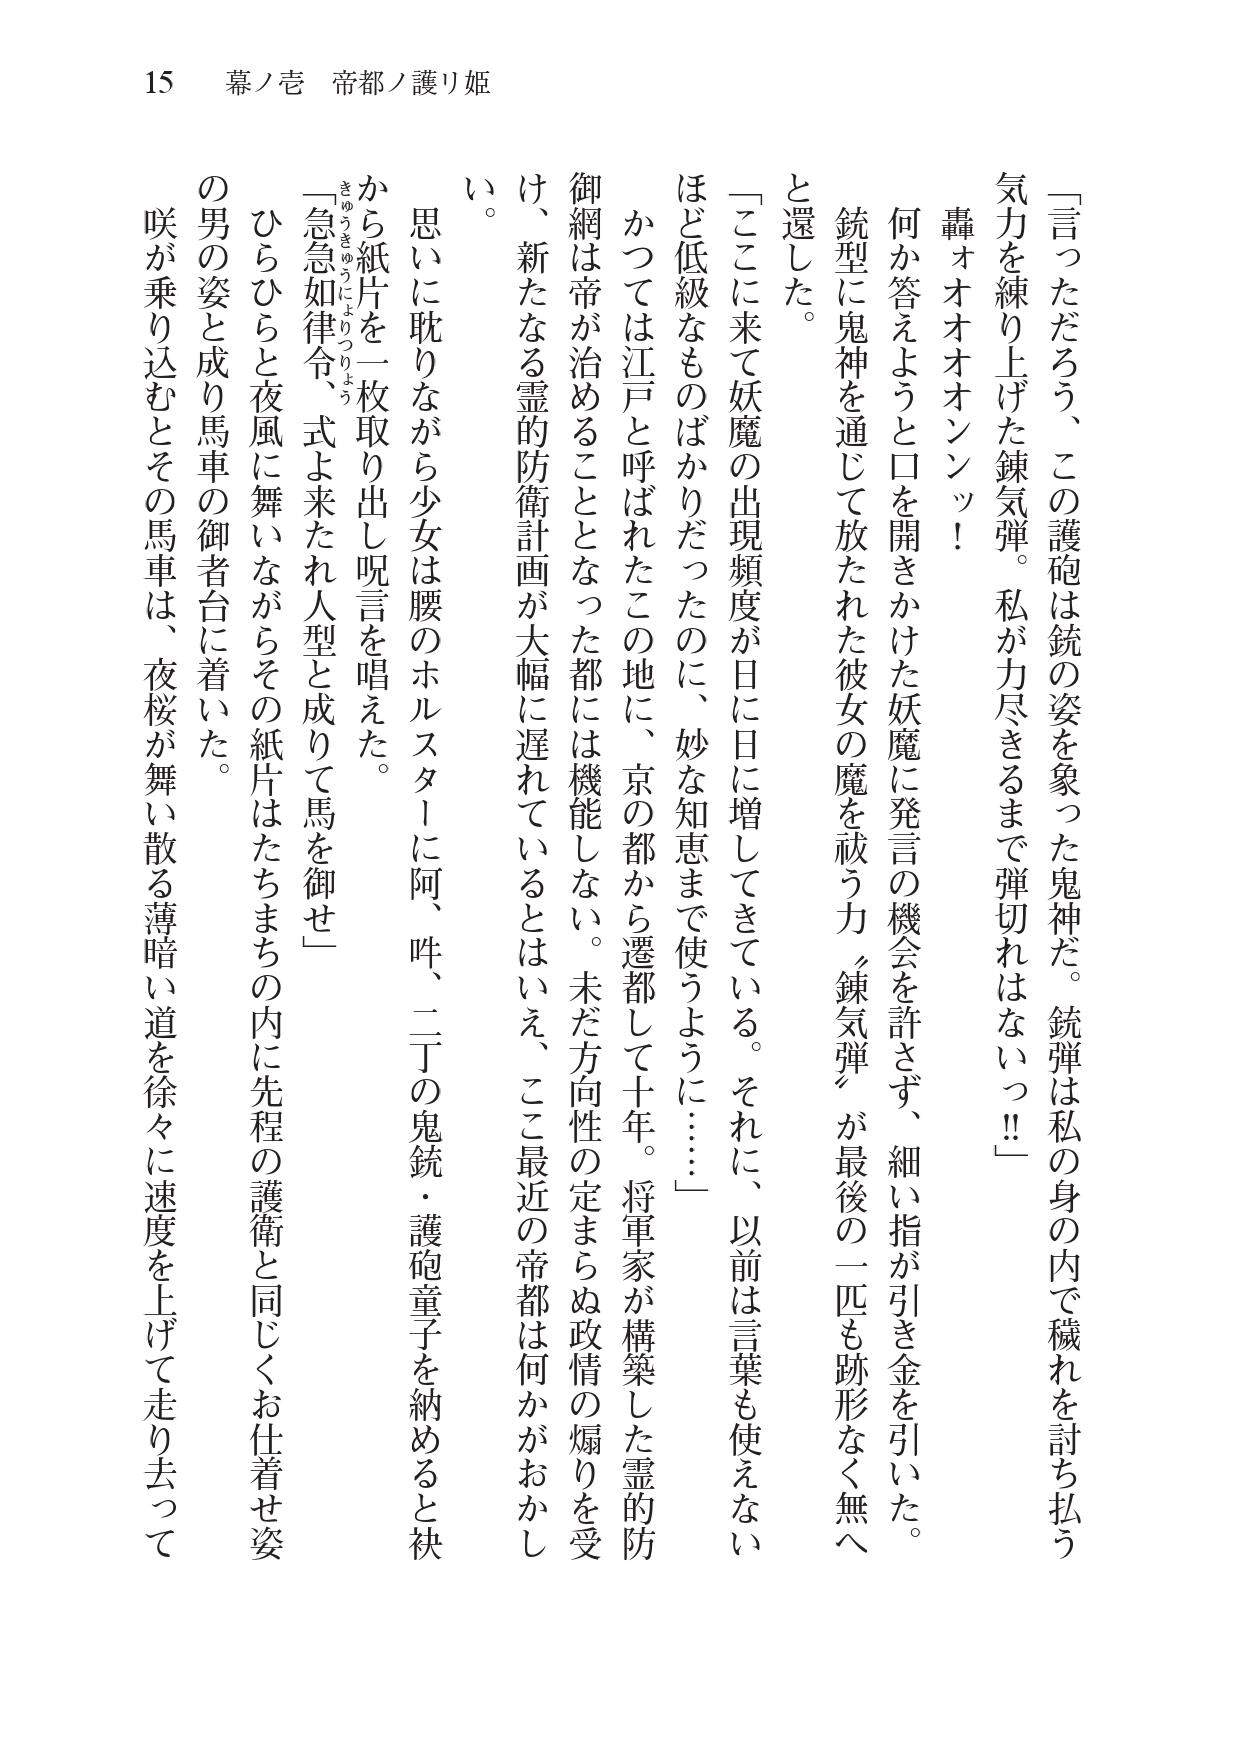 15　幕ノ壱　帝都ノ護リ姫
「言っただろう、この護砲は銃の姿を象った鬼神だ。銃弾は私の身の内で穢れを討ち払う
気力を練り上げた錬気弾。私が力尽きるまで弾切れはないっ‼」
　轟ォオオオオンンッ！
　何か答えようと口を開きかけた妖魔に発言の機会を許さず、細い指が引き金を引いた。
　銃型に鬼神を通じて放たれた彼女の魔を祓う力〝錬気弾〟が最後の一匹も跡形なく無へ
と還した。
「ここに来て妖魔の出現頻度が日に日に増してきている。それに、以前は言葉も使えない
ほど低級なものばかりだったのに、妙な知恵まで使うように……」
　かつては江戸と呼ばれたこの地に、京の都から遷都して十年。将軍家が構築した霊的防
御網は帝が治めることとなった都には機能しない。未だ方向性の定まらぬ政情の煽りを受
け、新たなる霊的防衛計画が大幅に遅れているとはいえ、ここ最近の帝都は何かがおかし
い。
　思いに耽りながら少女は腰のホルスターに阿、吽、二丁の鬼銃・護砲童子を納めると袂
から紙片を一枚取り出し呪言を唱えた。
きゅうきゅうにょりつりょう
「急急如律令、式よ来たれ人型と成りて馬を御せ」
　ひらひらと夜風に舞いながらその紙片はたちまちの内に先程の護衛と同じくお仕着せ姿
の男の姿と成り馬車の御者台に着いた。
　咲が乗り込むとその馬車は、夜桜が舞い散る薄暗い道を徐々に速度を上げて走り去って